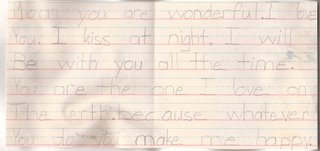 Mom you are wonderful. I love
You. I kiss at night. I will
Be with you all the time.
You are the one I love on
The erth because whatever
You do You make me happy